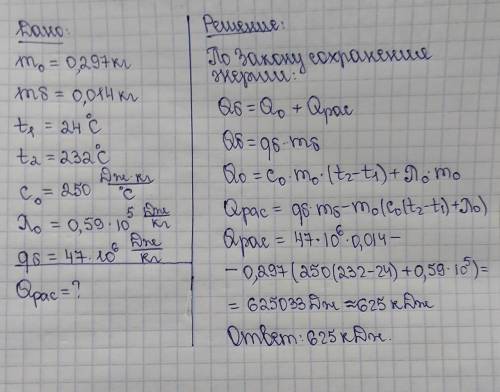 Дано:
m₀ = 0,297 кг
mб = 0,014 кг
t₁ = 24°C
t₂ = 232°C
c₀ = 250 Дж·кг/°C
λ₀ = 0,59·10⁵ Дж/кг
qб = 47·10⁶ Дж/кг
Qрас = ?
Решение:
По закону сохранения
энергии:
Qб = Q₀ + Qрас
Qб = qб·mб
Q₀ = c₀·m₀·(t₂-t₁)+λ₀·m₀
Qрас = qб·mб-m₀(c₀(t₂-t₁)+λ₀)
Qрас = 47·10⁶·0,014 -
- 0,297(250(232-24)+0,59·10⁵) =
= 625033 Дж ≈ 625 кДж
Ответ: 625 кДж.